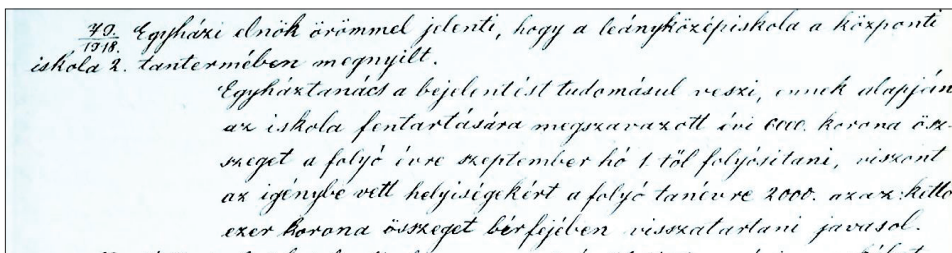 79./1918. Egyházi elnök örömmel jelenti, hogy a leányközépiskola a központi
iskola 2. tantermében megnyilt.
Egyháztanács a bejelentést tudomásul veszi, ennek alapján
az iskola fentartására megszavazott évi 6000. korona ösz-
szeget a folyó évre szeptember hó 1 től folyósitani, viszont
az igénybe vett helyiségekért a folyó tanévre 2000. azaz kettő
ezer korona összeget bérfejében visszatartani javasol.